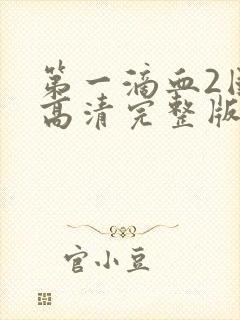 第一滴血2
高清完整版
官小豆